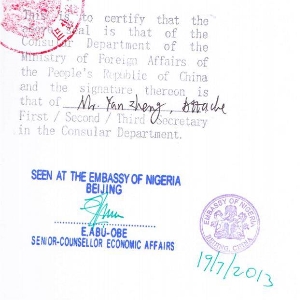 This is to certify that the
seal is that of the
Consular Department of the
Ministry of Foreign Affairs of
the People's Republic of China
and the signature thereon is
that of Mr. Yan Zheng, Attache
First / Second / Third Secretary
in the Consular Department.
SEEN AT THE EMBASSY OF NIGERIA
BEIJING
E.ABU-OBE
SENIOR-COUNSELLOR ECONOMIC AFFAIRS
EMBASSY OF NIGERIA
BEIJING, CHINA
19/7/2013